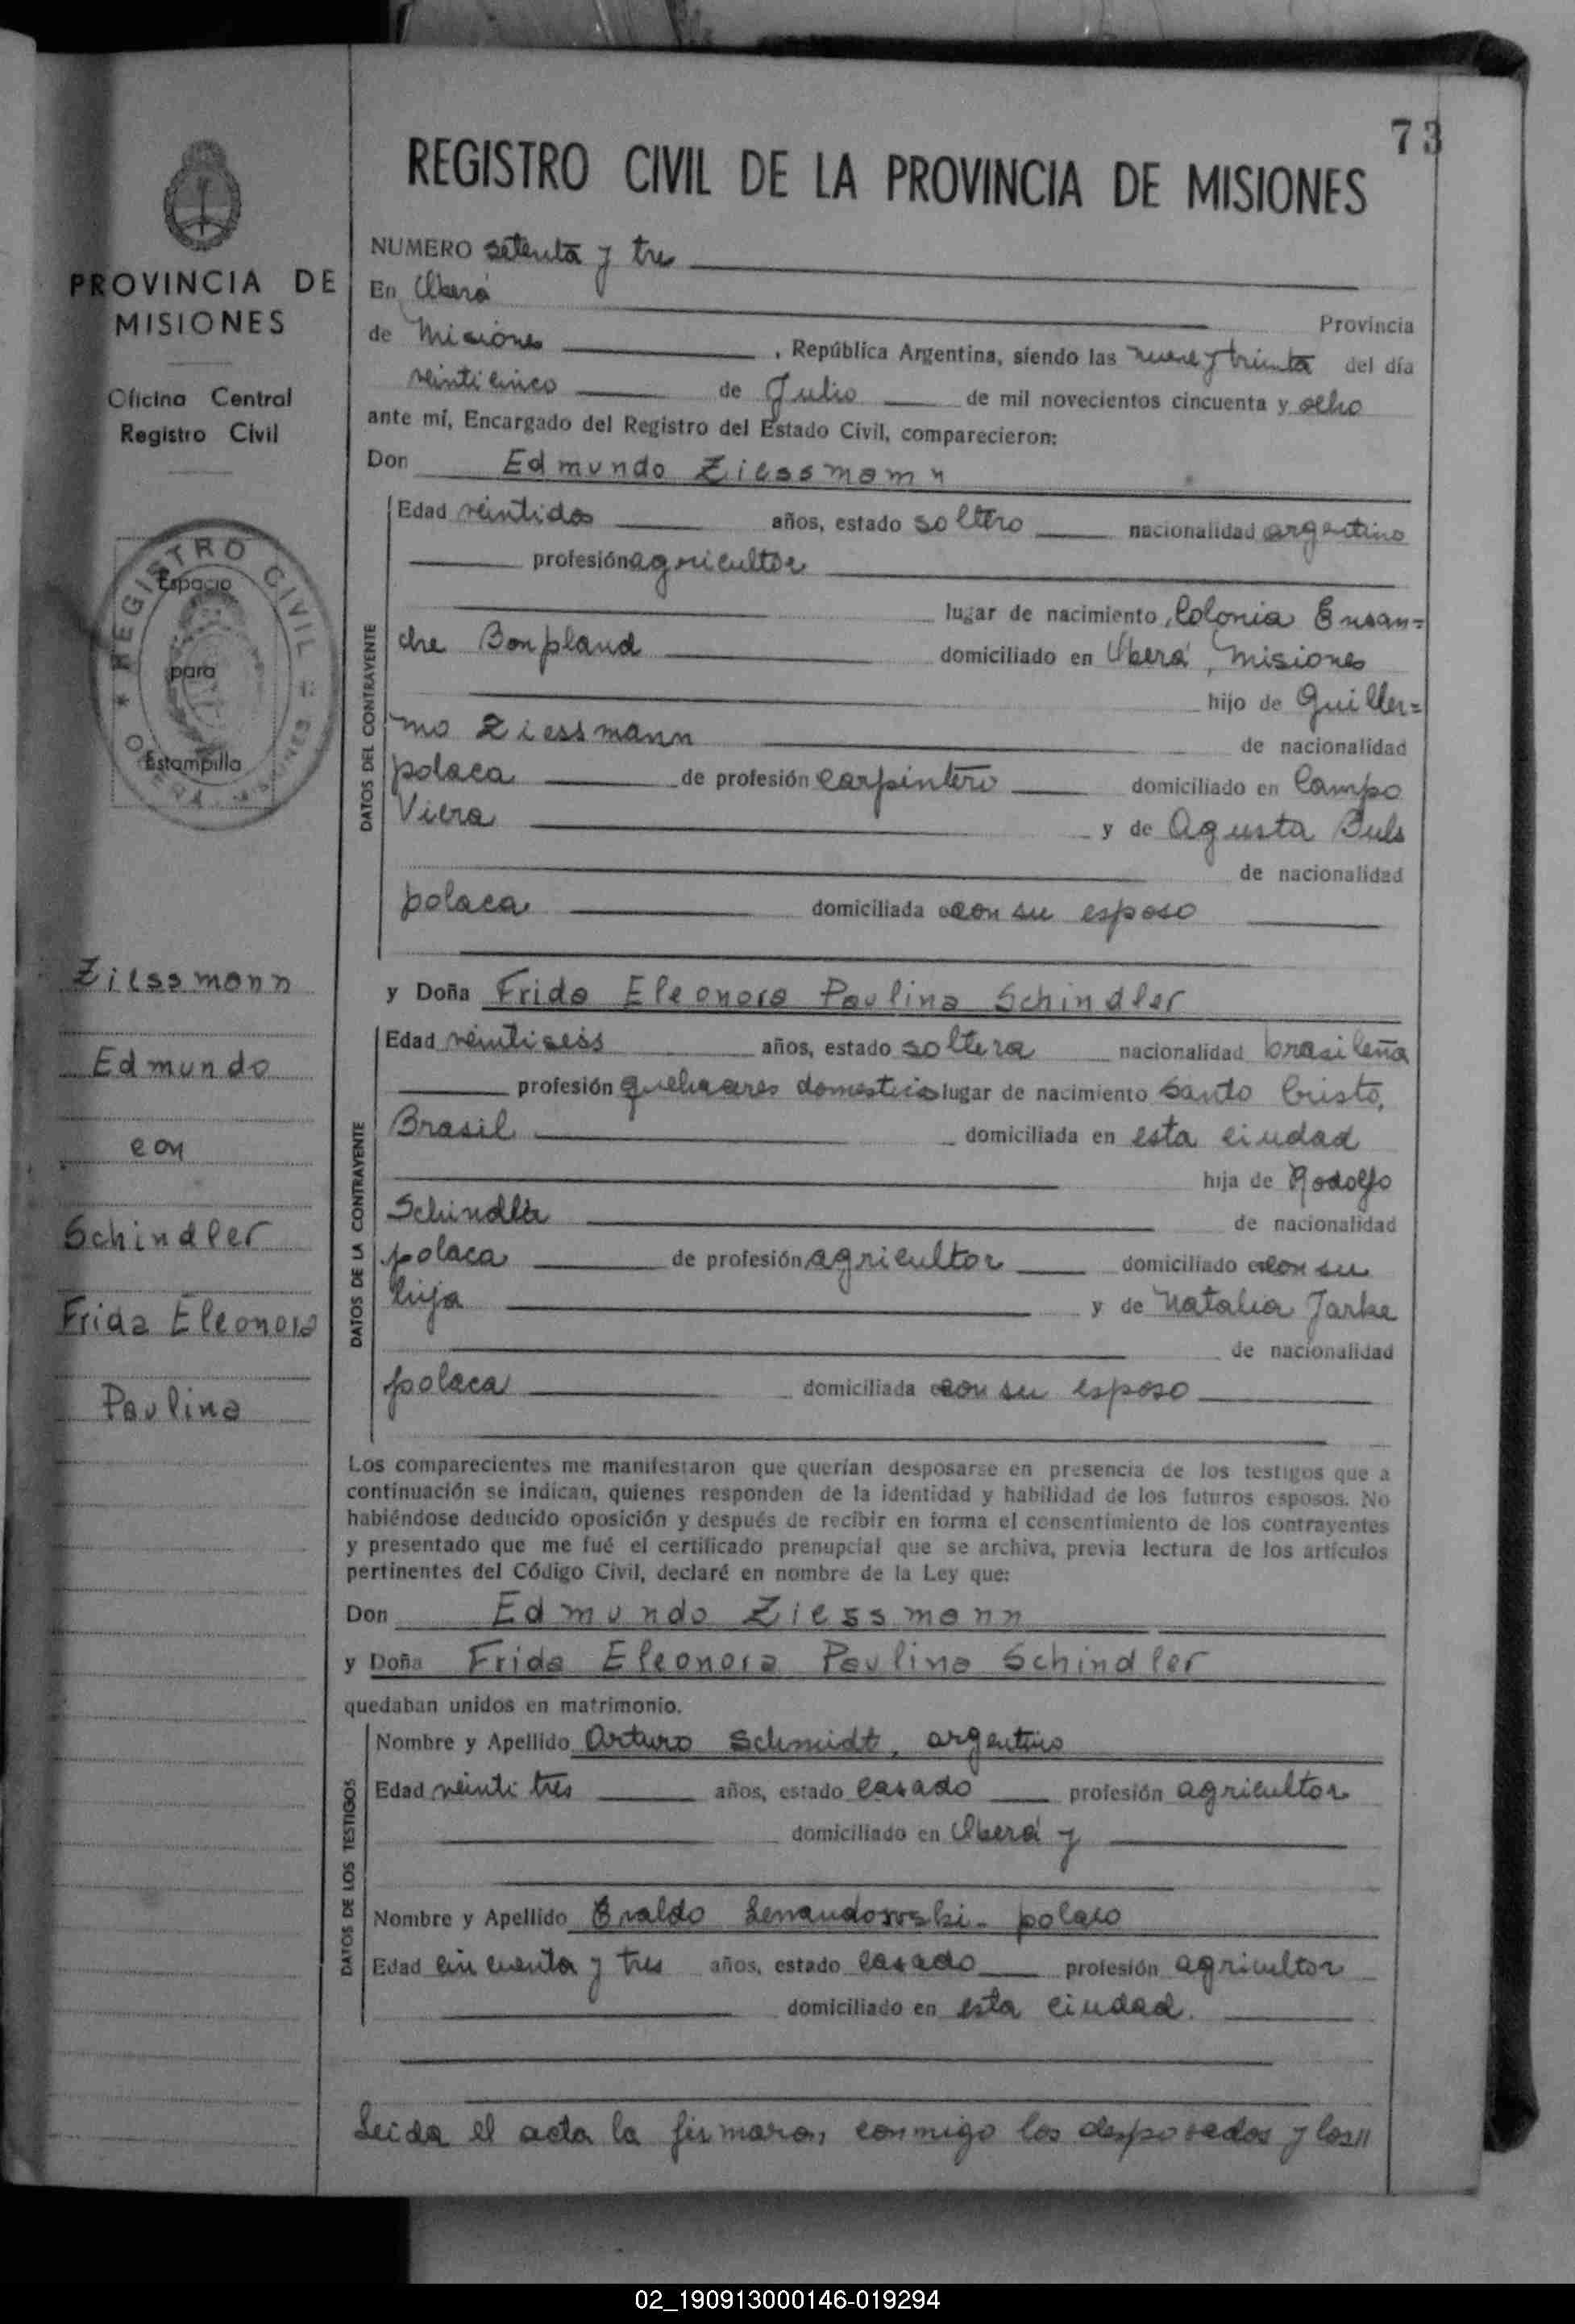 73
REGISTRO CIVIL DE LA PROVINCIA DE MISIONES
PROVINCIA DE
MISIONES
Oficina Central
Registro Civil
REGISTRO CIVIL
Espacio
para
Estampilla
Ziessmann
Edmundo
con
Schindler
Frida Eleonora
Paulina
NUMERO setenta y tres
En Oberá
Provincia
de Misiones , República Argentina, siendo las nueve y treinta del día
veinticinco de Julio de mil novecientos cincuenta y ocho
ante mí, Encargado del Registro del Estado Civil, comparecieron:
Don Edmundo Ziessmann
DATOS DEL CONTRAYENTE
Edad veintidos años, estado soltero nacionalidad argentino
profesión agricultor
lugar de nacimiento, Colonia Ensan=
che Bonpland domiciliado en Oberá, Misiones
hijo de Guiller=
mo Ziessmann de nacionalidad
polaca de profesión carpintero domiciliado en Campo
Viera y de Agusta Buls
de nacionalidad
polaca domiciliada con su esposo
y Doña Frida Eleonora Paulina Schindler
DATOS DE LA CONTRAYENTE
Edad veintiseis años, estado soltera nacionalidad brasileña
profesión quehaceres domesticos lugar de nacimiento Santo Cristo,
Brasil domiciliada en esta ciudad
hija de Rodolfo
Schindler de nacionalidad
polaca de profesión agricultor domiciliado con su
hija y de Natalia Jarke
de nacionalidad
polaca domiciliada con su esposo
Los comparecientes me manifestaron que querían desposarse en presencia de los testigos que a
continuación se indican, quienes responden de la identidad y habilidad de los futuros esposos. No
habiéndose deducido oposición y después de recibir en forma el consentimiento de los contrayentes
y presentado que me fué el certificado prenupcial que se archiva, previa lectura de los artículos
pertinentes del Código Civil, declaré en nombre de la Ley que:
Don Edmundo Ziessmann
y Doña Frida Eleonora Paulina Schindler
quedaban unidos en matrimonio.
DATOS DE LOS TESTIGOS
Nombre y Apellido Arturo Schmidt, argentino
Edad veintitres años, estado casado profesión agricultor
domiciliado en Oberá y
Nombre y Apellido Evaldo Lewandowski - polaco
Edad cincuenta y tres años, estado casado profesión agricultor
domiciliado en esta ciudad.
Leida el acta la firmaron conmigo los desposados y los//
02_190913000146-019294